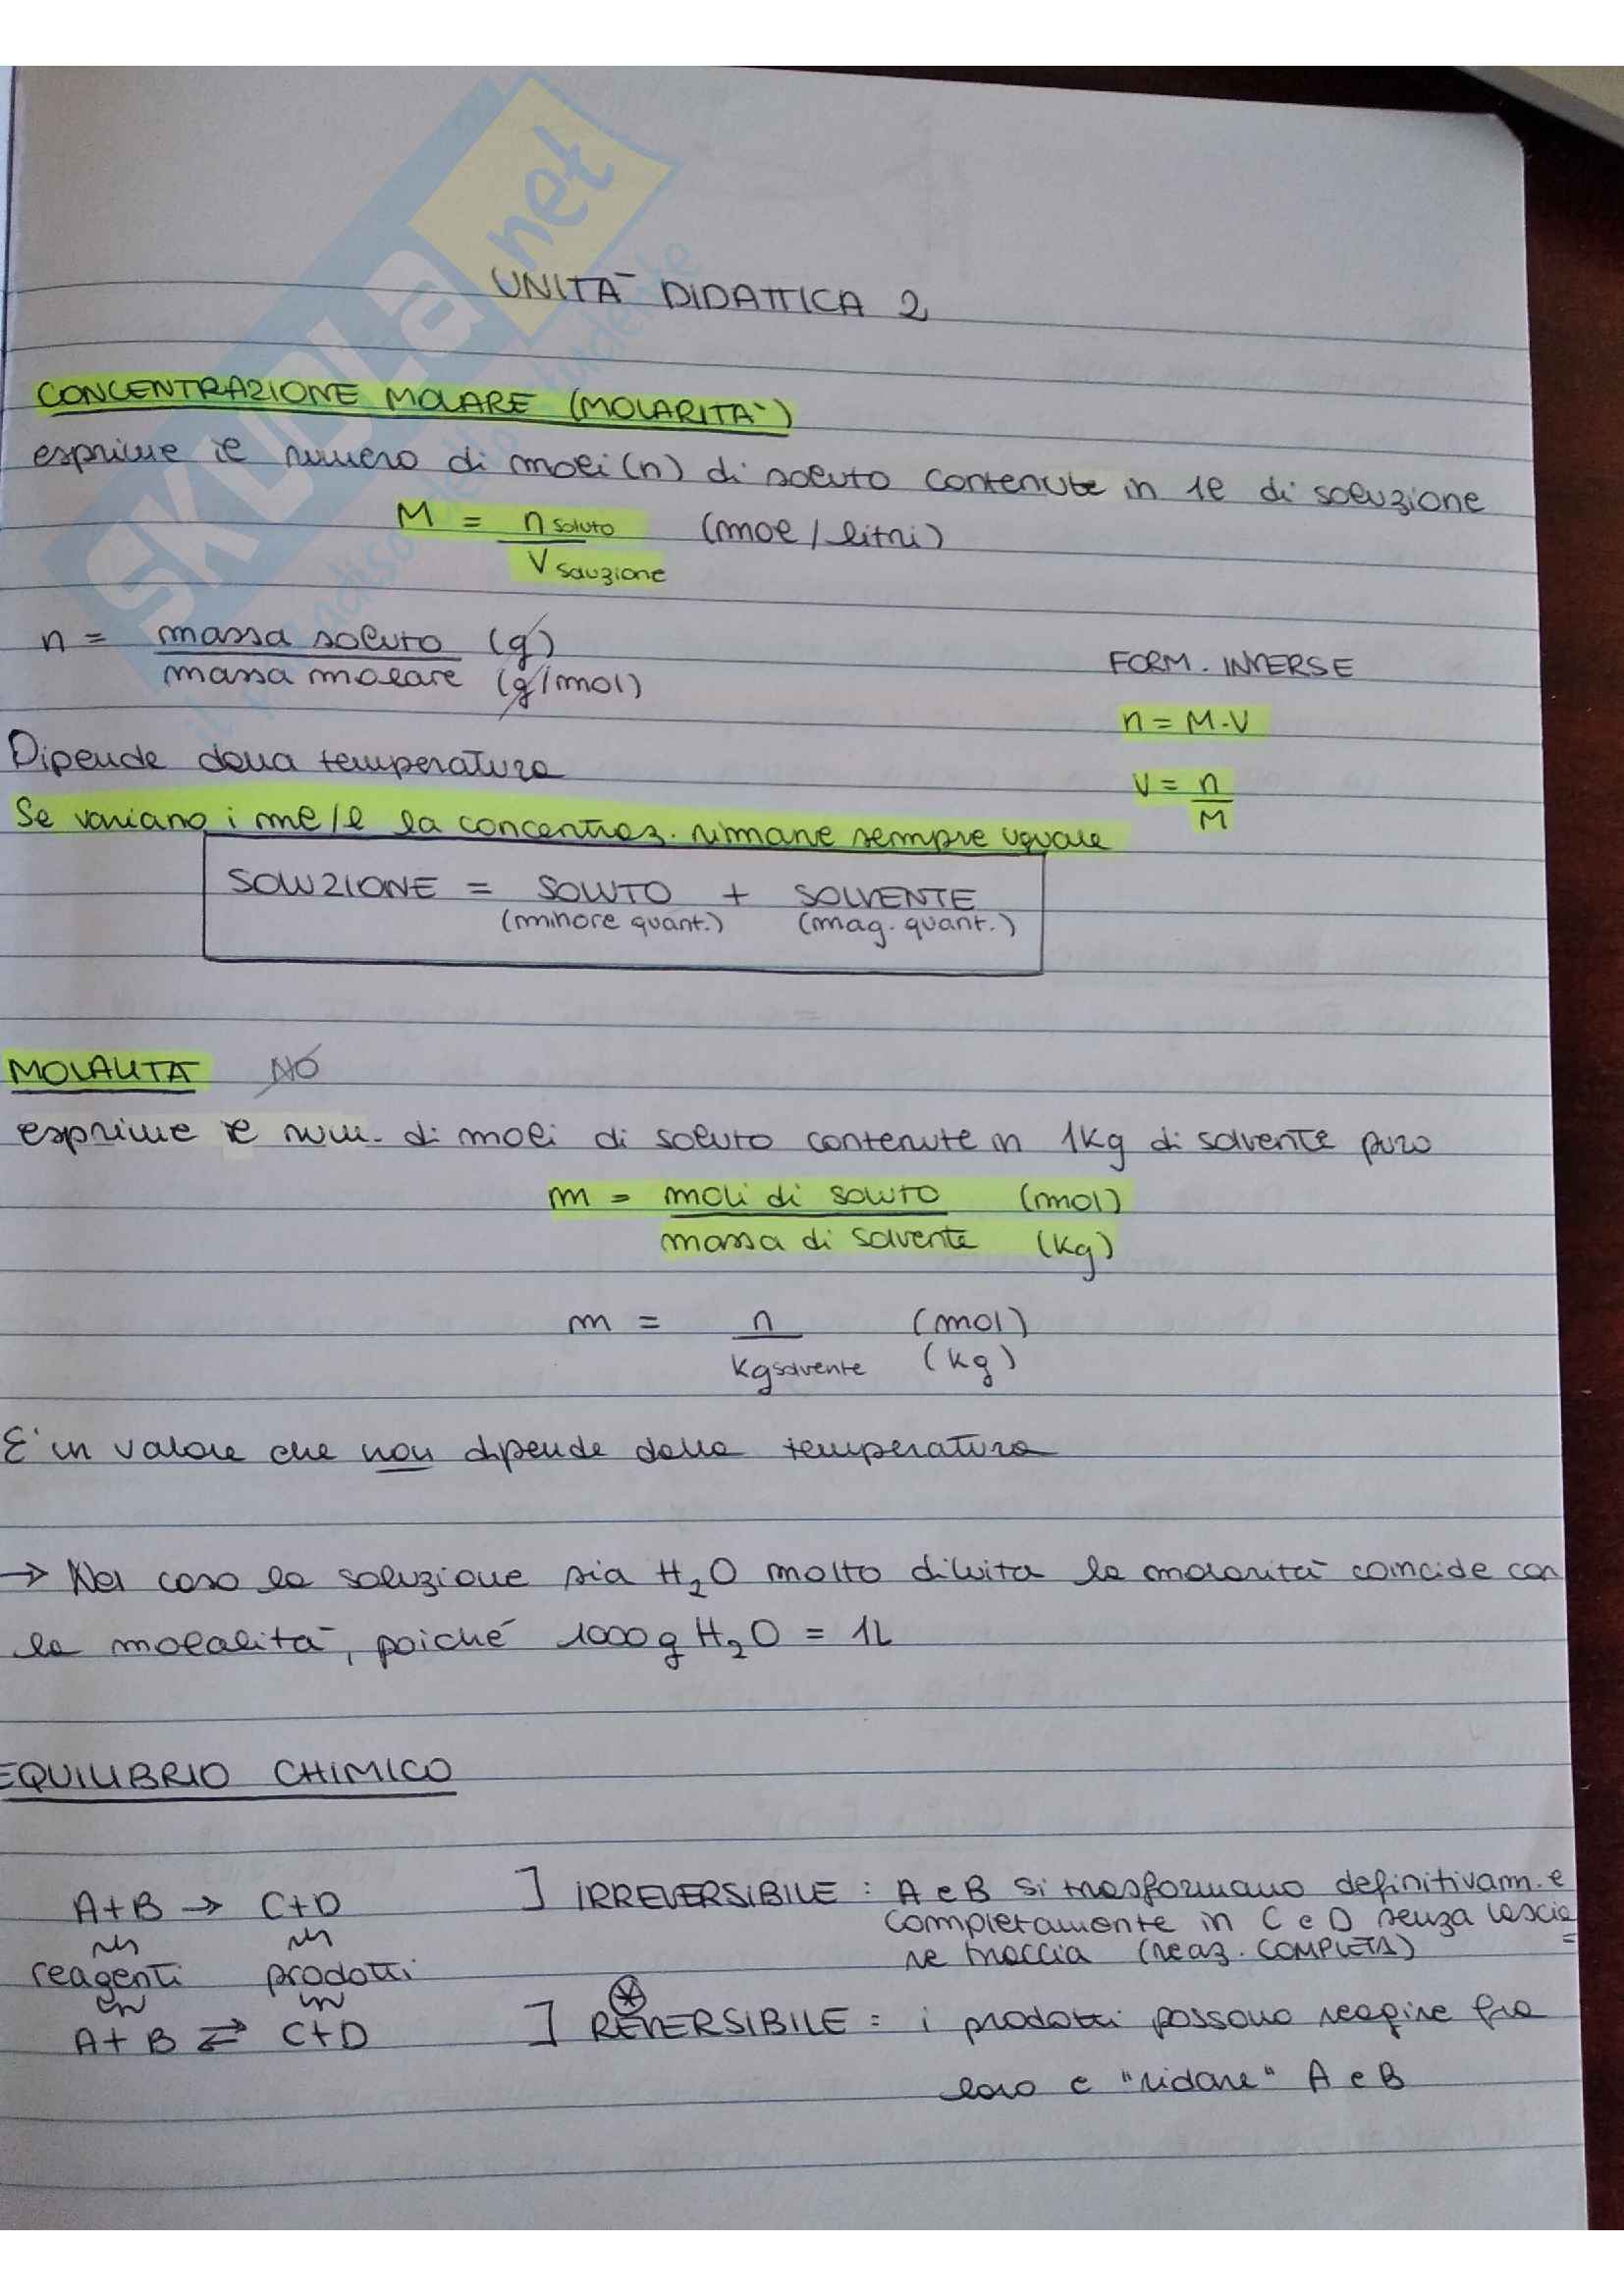 SKUOLA.net
il paradiso dello studente
UNITÀ DIDATTICA 2
CONCENTRAZIONE MOLARE (MOLARITÀ)
esprime il numero di moli (n) di soluto contenute in 1l di soluzione
M = n soluto / V soluzione (mol / litri)
n = massa soluto (g) / massa molare (g/mol)
FORM. INVERSE
n = M·V
Dipende dalla temperatura
V = n / M
Se variano i ml/l la concentraz. rimane sempre uguale
SOLUZIONE = SOLUTO + SOLVENTE
(minore quant.) (mag. quant.)
MOLALITÀ NO
esprime il num. di moli di soluto contenute in 1Kg di solvente puro
m = moli di soluto (mol)
massa di solvente (Kg)
m = n (mol)
Kg solvente (kg)
E' un valore che non dipende dalla temperatura
→ Nel caso la soluzione sia H₂O molto diluita la molarità coincide con
la molalità, poiché 1000g H₂O = 1L
EQUILIBRIO CHIMICO
A+B → C+D ] IRREVERSIBILE : A e B si trasformano definitivam. e
completamente in C e D senza lascia
re traccia (reaz. COMPLETA)
reagenti prodotti
A+B ⇄ C+D ] REVERSIBILE : i prodotti possono reagire fra
loro e "ridare" A e B